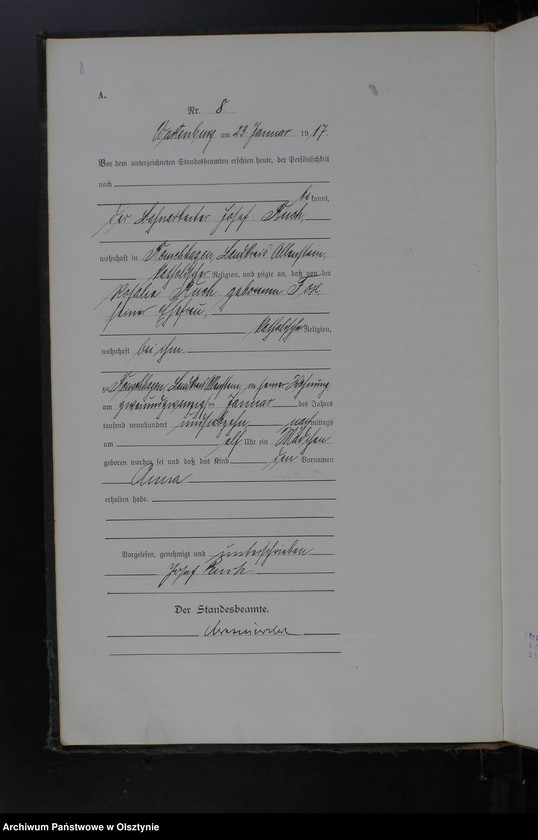 8
A.
Nr. 8.
Wartenburg am 23 Januar 1917.
Vor dem unterzeichneten Standesbeamten erschien heute, der Persönlichkeit
nach
be kannt,
der Josef
wohnhaft in Landkreis Allenstein,
katholischer Religion, und zeigte an, daß von der
Rosalie geborenen
seiner Ehefrau,
katholischer Religion,
wohnhaft bei ihm
zu Landkreis Allenstein, in seiner Wohnung
am zweiundzwanzigsten Januar des Jahres
tausend neunhundert und siebzehn nachmittags
um elf Uhr ein Mädchen
geboren worden sei und daß das Kind den Vornamen
Anna
erhalten habe.
Vorgelesen, genehmigt und unterschrieben
Josef
Der Standesbeamte.
Archiwum Państwowe w Olsztynie